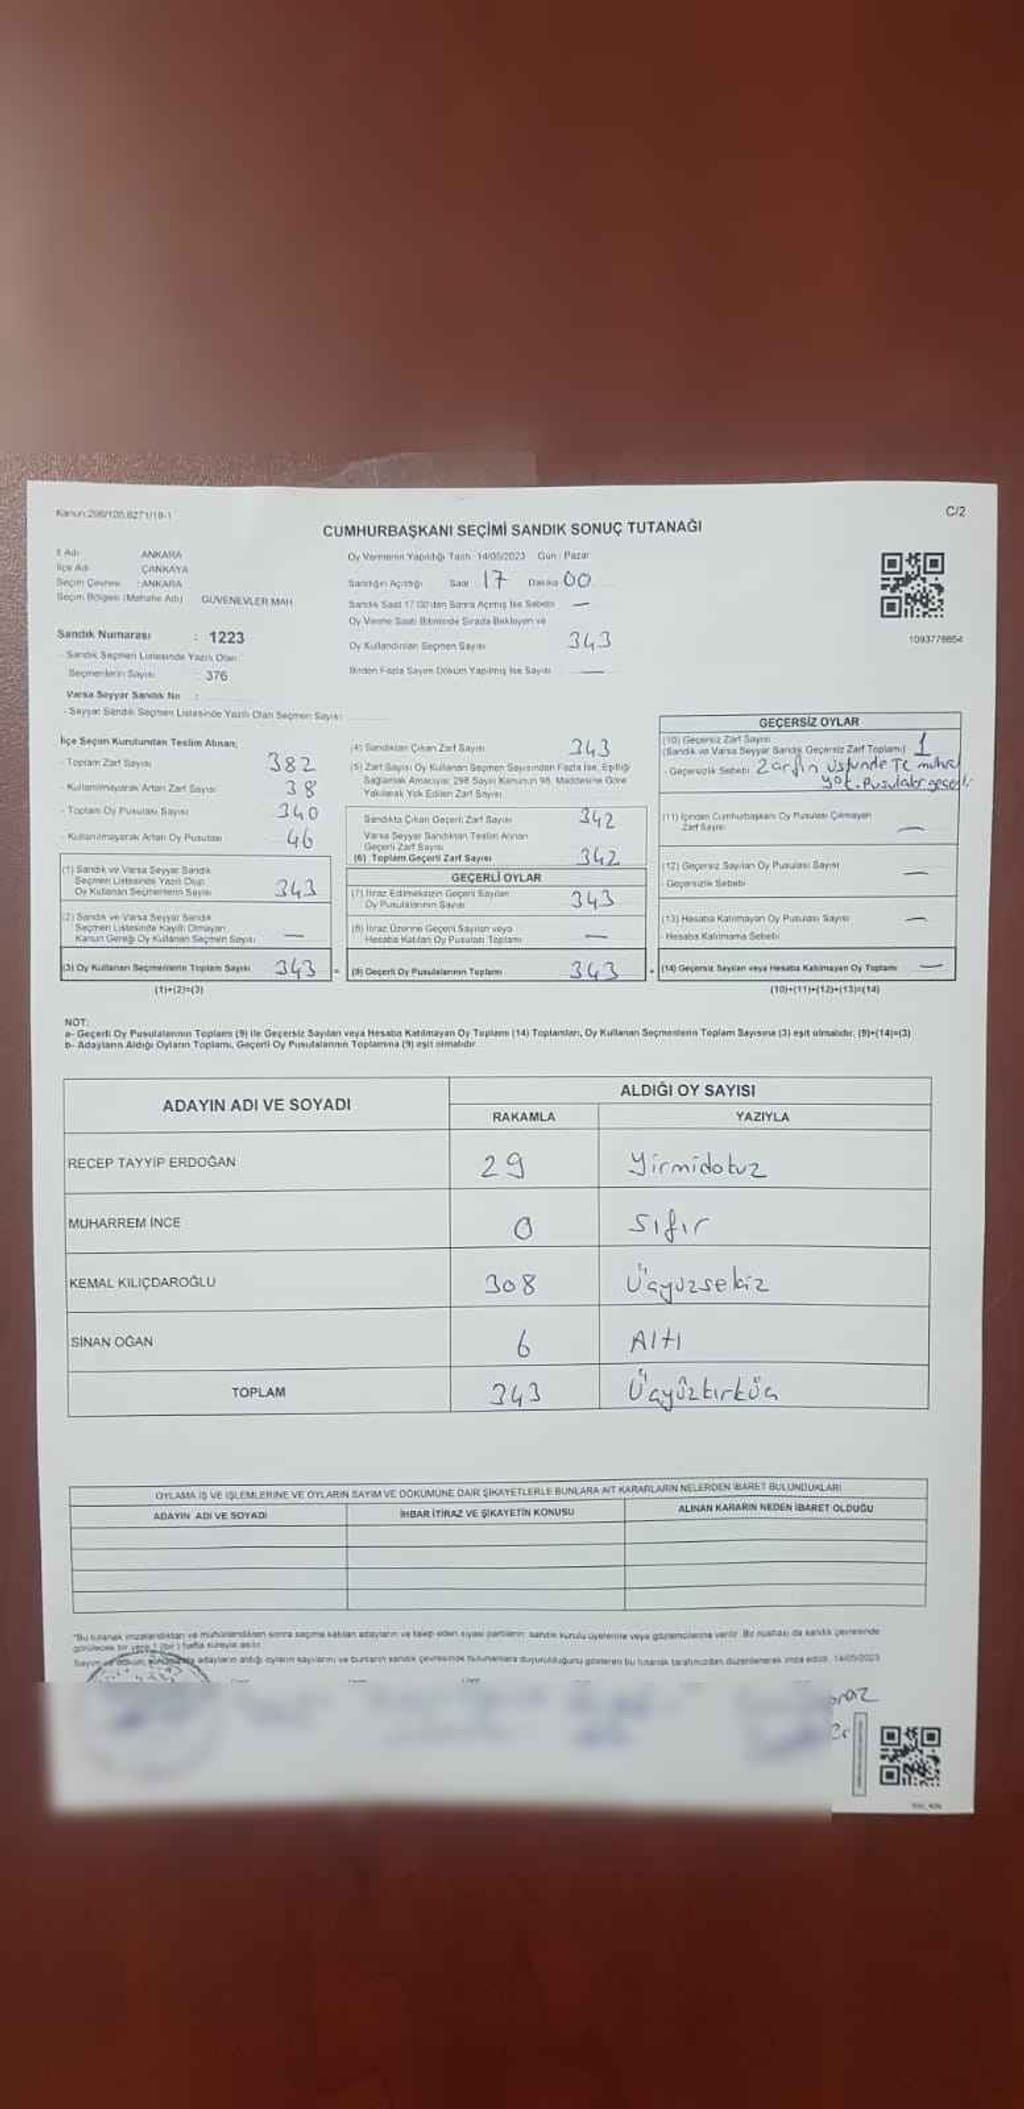 Kanun:298/105,6271/18-1
C/2
CUMHURBAŞKANI SEÇİMİ SANDIK SONUÇ TUTANAĞI
İl Adı ANKARA
İlçe Adı ÇANKAYA
Seçim Çevresi : ANKARA
Seçim Bölgesi (Mahalle Adı) GÜVENEVLER MAH
Sandık Numarası : 1223
- Sandık Seçmen Listesinde Yazılı Olan
Seçmenlerin Sayısı 376
Varsa Seyyar Sandık No :
- Seyyar Sandık Seçmen Listesinde Yazılı Olan Seçmen Sayısı:
Oy Vermenin Yapıldığı Tarih: 14/05/2023 Gün: Pazar
Sandığın Açıldığı Saat : 17 Dakika 00
Sandık Saat 17:00'dan Sonra Açılmış İse Sebebi —
Oy Verme Saati Bitiminde Sırada Bekleyen ve
Oy Kullandırılan Seçmen Sayısı 343
Birden Fazla Sayım Döküm Yapılmış İse Sayısı —
1093776654
İlçe Seçim Kurulundan Teslim Alınan;
- Toplam Zarf Sayısı 382
- Kullanılmayarak Artan Zarf Sayısı 38
- Toplam Oy Pusulası Sayısı 340
- Kullanılmayarak Artan Oy Pusulası 46
(1) Sandık ve Varsa Seyyar Sandık
Seçmen Listesinde Yazılı Olup
Oy Kullanan Seçmenlerin Sayısı 343
(2) Sandık ve Varsa Seyyar Sandık
Seçmen Listesinde Kayıtlı Olmayan
Kanun Gereği Oy Kullanan Seçmen Sayısı —
(3) Oy Kullanan Seçmenlerin Toplam Sayısı 343 =
(1)+(2)=(3)
(4) Sandıktan Çıkan Zarf Sayısı 343
(5) Zarf Sayısı Oy Kullanan Seçmen Sayısından Fazla İse, Eşitliği
Sağlamak Amacıyla; 298 Sayılı Kanunun 98. Maddesine Göre
Yakılarak Yok Edilen Zarf Sayısı
Sandıkta Çıkan Geçerli Zarf Sayısı 342
Varsa Seyyar Sandıktan Teslim Alınan
Geçerli Zarf Sayısı
(6) Toplam Geçerli Zarf Sayısı 342
GEÇERLİ OYLAR
(7) İtiraz Edilmeksizin Geçerli Sayılan
Oy Pusulalarının Sayısı 343
(8) İtiraz Üzerine Geçerli Sayılan veya
Hesaba Katılan Oy Pusulası Toplamı —
(9) Geçerli Oy Pusulalarının Toplamı 343 +
GEÇERSİZ OYLAR
(10) Geçersiz Zarf Sayısı
(Sandık ve Varsa Seyyar Sandık Geçersiz Zarf Toplamı) 1
- Geçersizlik Sebebi: Zarfın üstünde TC mührü
yok. Pusulalar geçerli.
(11) İçinden Cumhurbaşkanı Oy Pusulası Çıkmayan
Zarf Sayısı —
(12) Geçersiz Sayılan Oy Pusulası Sayısı —
- Geçersizlik Sebebi
(13) Hesaba Katılmayan Oy Pusulası Sayısı —
- Hesaba Katılmama Sebebi
(14) Geçersiz Sayılan veya Hesaba Katılmayan Oy Toplamı —
(10)+(11)+(12)+(13)=(14)
NOT:
a- Geçerli Oy Pusulalarının Toplamı (9) ile Geçersiz Sayılan veya Hesaba Katılmayan Oy Toplamı (14) Toplamları, Oy Kullanan Seçmenlerin Toplam Sayısına (3) eşit olmalıdır. (9)+(14)=(3)
b- Adayların Aldığı Oyların Toplamı, Geçerli Oy Pusulalarının Toplamına (9) eşit olmalıdır
ADAYIN ADI VE SOYADI
ALDIĞI OY SAYISI
RAKAMLA YAZIYLA
RECEP TAYYİP ERDOĞAN 29 Yirmidokuz
MUHARREM İNCE 0 Sıfır
KEMAL KILIÇDAROĞLU 308 Üçyüzsekiz
SİNAN OĞAN 6 Altı
TOPLAM 343 Üçyüzkırküç
OYLAMA İŞ VE İŞLEMLERİNE VE OYLARIN SAYIM VE DÖKÜMÜNE DAİR ŞİKAYETLERLE BUNLARA AİT KARARLARIN NELERDEN İBARET BULUNDUKLARI
ADAYIN ADI VE SOYADI İHBAR İTİRAZ VE ŞİKAYETİN KONUSU ALINAN KARARIN NEDEN İBARET OLDUĞU
"Bu tutanak imzalandıktan ve mühürlendikten sonra seçime katılan adayların ve talep eden siyasi partilerin, sandık kurulu üyelerine veya gözlemcilerine verilir. Bir nüshası da sandık çevresinde
görülecek bir yere 1 (bir) hafta süreyle asılır.
adayların aldığı oyların sayılarını ve bunların sandık çevresinde bulunanlara duyurulduğunu gösteren bu tutanak tarafımızdan düzenlenerek imza edildi. 14/05/2023